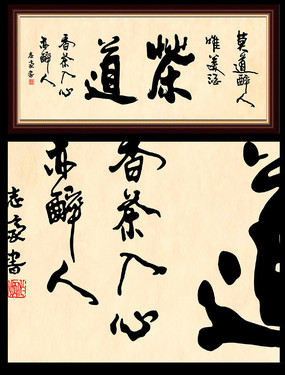 莫道醉人
唯美酒
茶道
香茶入心
亦醉人
志豪書
道
香茶入心
亦醉人
志豪書